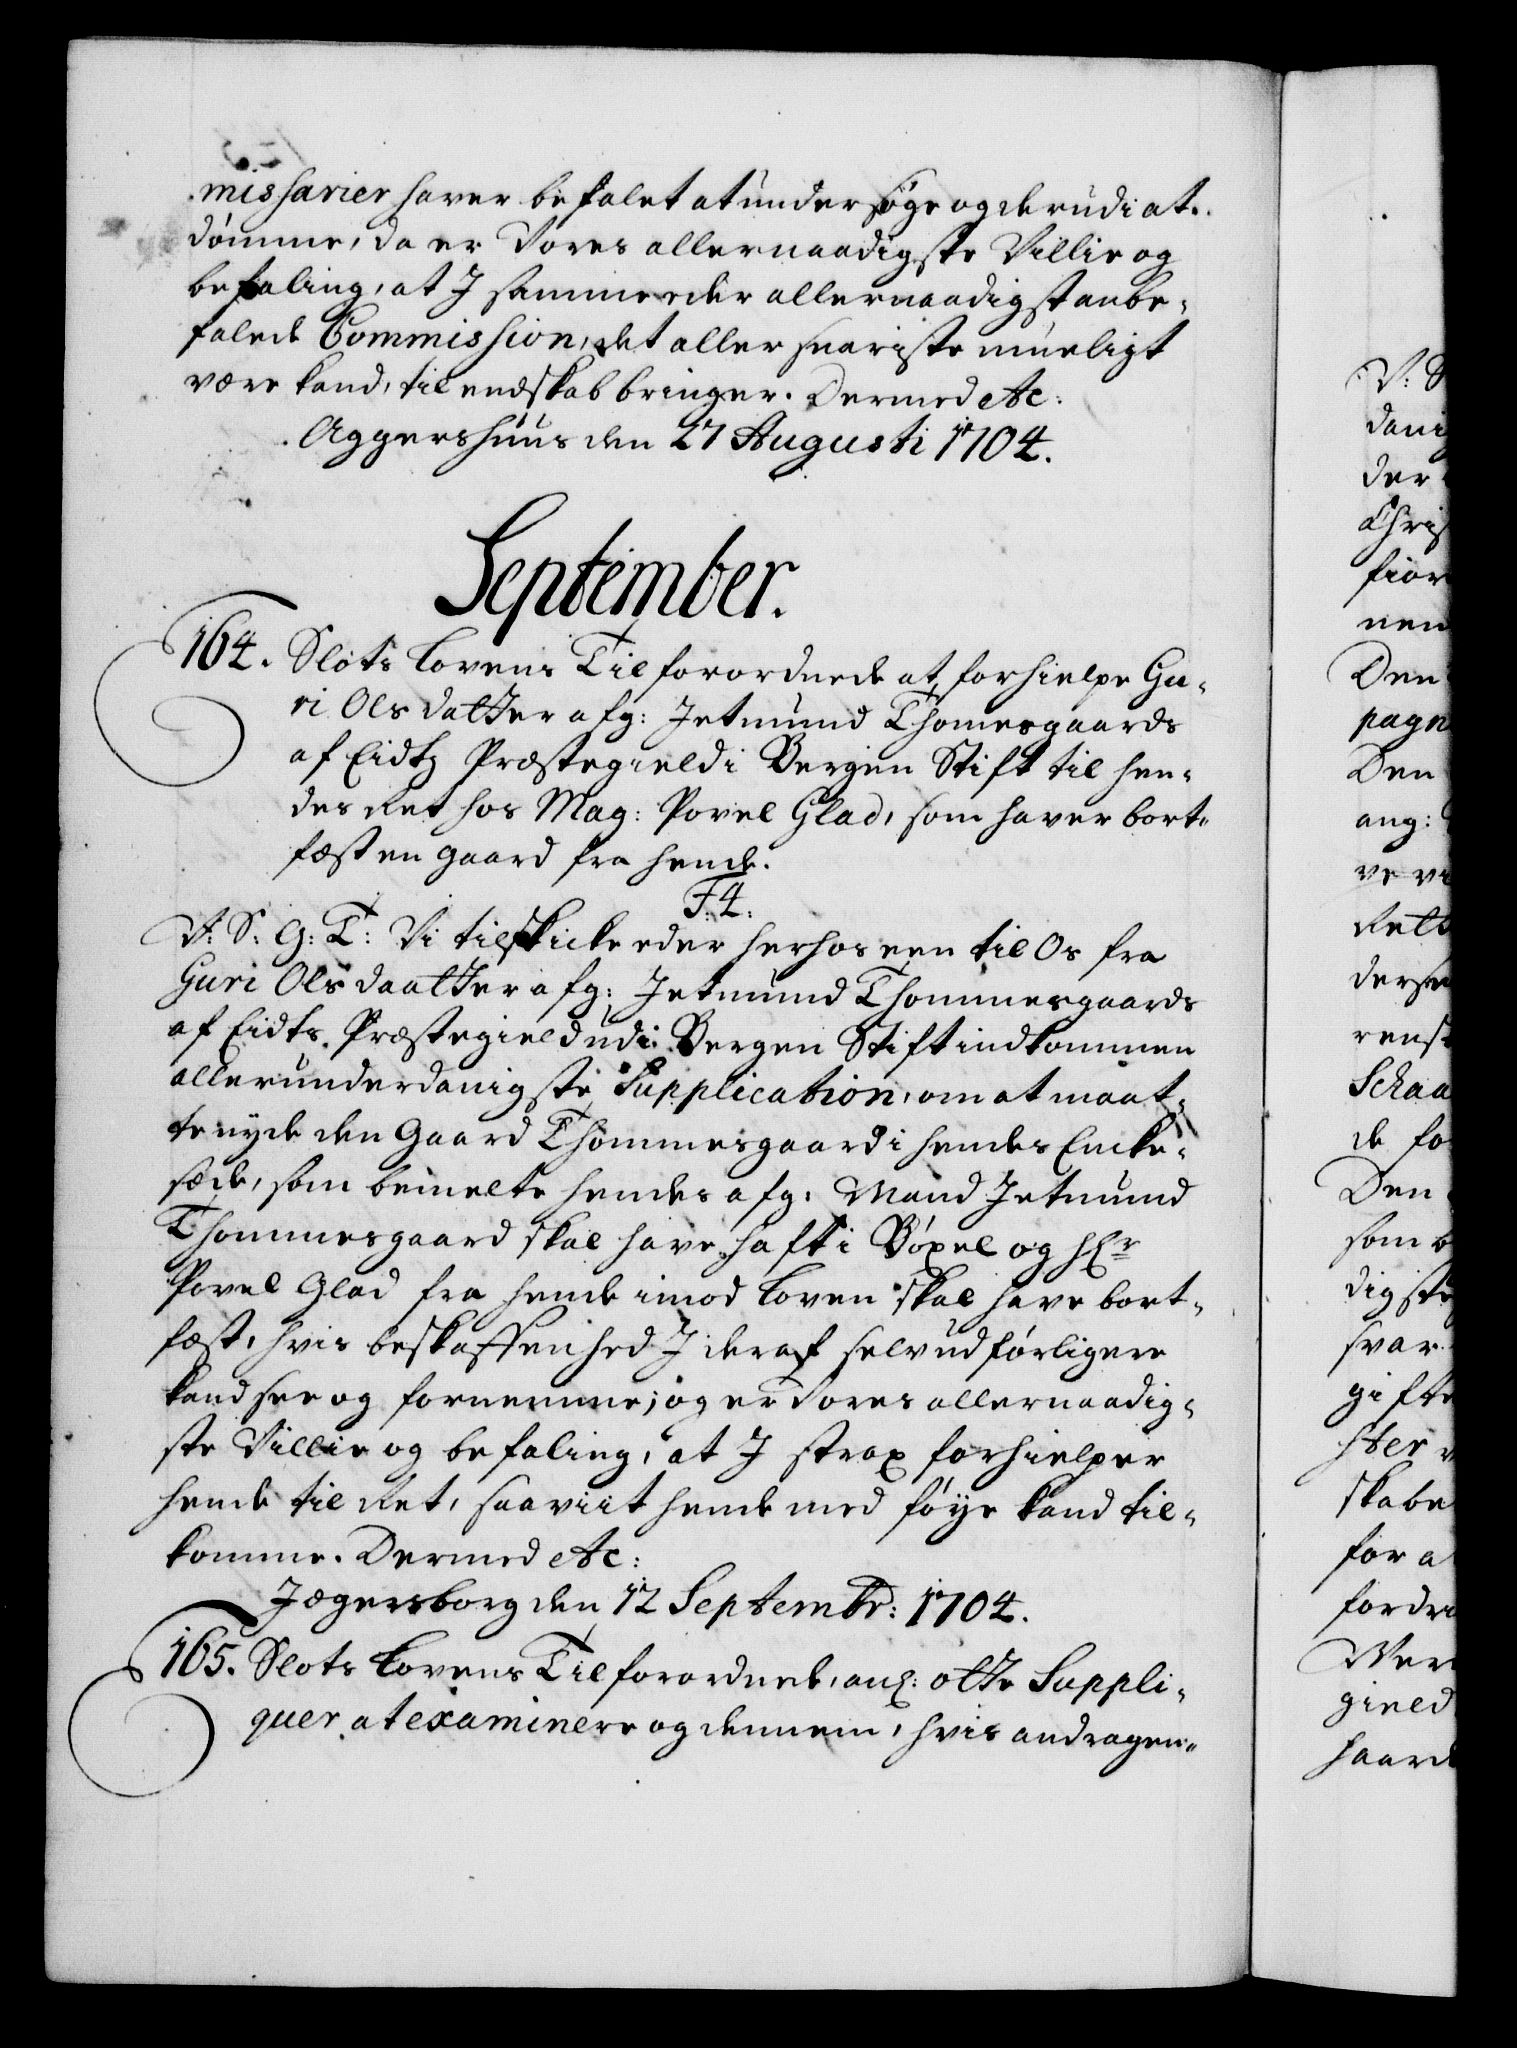 missarier haver befalet at undersøge og derudi at
dømme, da er Vores allernaadigste Villie og
befaling, at I samme eder allernaadigst anbe-
falede Commission, det aller snariste mueligt
være kand, til endskab bringer. Dermed etc:
Aggershuus den 27 Augusti 1704.
September.
164. Slots Lovens Tilforordnede at forhielpe Gu-
ri Olsdatter afg: Jetmund Thomesgaards
af Eidtz Præstegield i Bergen Stift til hen-
des Ret hos Mag: Povel Glad, som haver bort-
fæst en gaard fra hende.
F. 4.
V: S: G: T: Vi tilskicke eder herhos een til Os fra
Guri Olsdaatter afg: Jetmund Thommesgaards
af Eidts Præstegield udi Bergen Stift indkommen
allerunderdanigste Supplication, om at maat-
te nyde den Gaard Thommesgaard i hendes Encke-
sæde, som bemelte hendes afg: Mand Jetmund
Thommesgaard skal have haft i Bøxel og Hr
Povel Glad fra hende imod Loven skal have bort-
fæst, hvis beskaffenhed I deraf selv udførligere
kand see og fornemme; og er Vores allernaadig-
ste Villie og befaling, at I strax forhielper
hende til Ret, saaviit hende med føye kand til-
komme. Dermed etc:
Jægersborg den 12 Septembr: 1704.
165. Slots Lovens Tilforordnede, anl: otte Suppli-
quer at examinere og dennem, hvis andragen-
V: S
dani
der
Chris
fior
nem
Den
pagn
Den
ang:
ve vi
Rett
derse
rens
Schaa
de fo
Den
som b
digste
svar
gifte
hter
skabe
for a
fordr
Wer
gield
haard